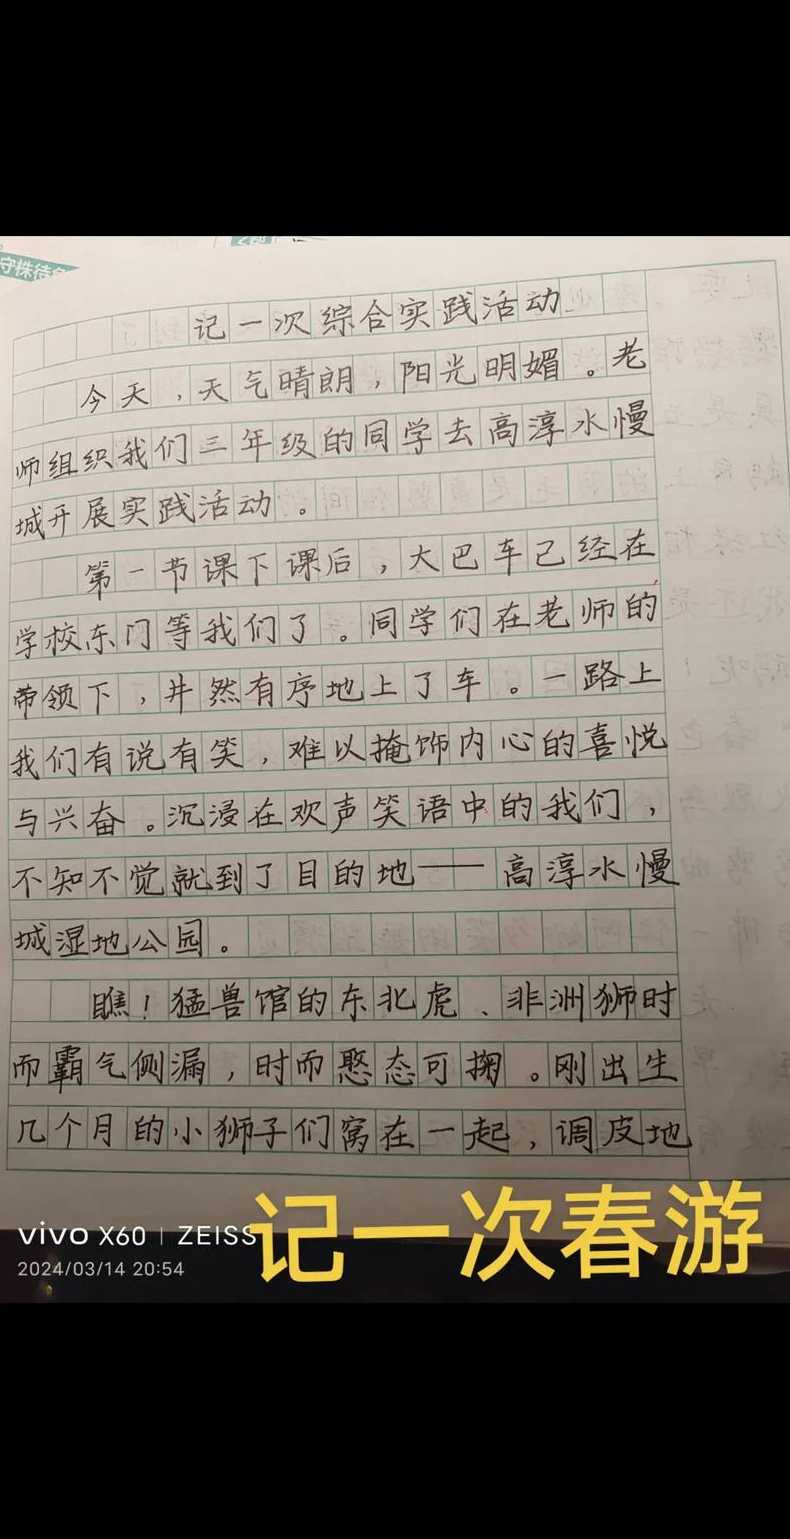 守株待
记一次综合实践活动
今天，天气晴朗，阳光明媚。老
师组织我们三年级的同学去高淳水慢
城开展实践活动。
第一节课下课后，大巴车已经在
学校东门等我们了。同学们在老师的
带领下，井然有序地上了车。一路上
我们有说有笑，难以掩饰内心的喜悦
与兴奋。沉浸在欢声笑语中的我们，
不知不觉就到了目的地——高淳水慢
城湿地公园。
瞧！猛兽馆的东北虎、非洲狮时
而霸气侧漏，时而憨态可掬。刚出生
几个月的小狮子们窝在一起，调皮地
vivo X60 | ZEISS
2024/03/14 20:54
记一次春游